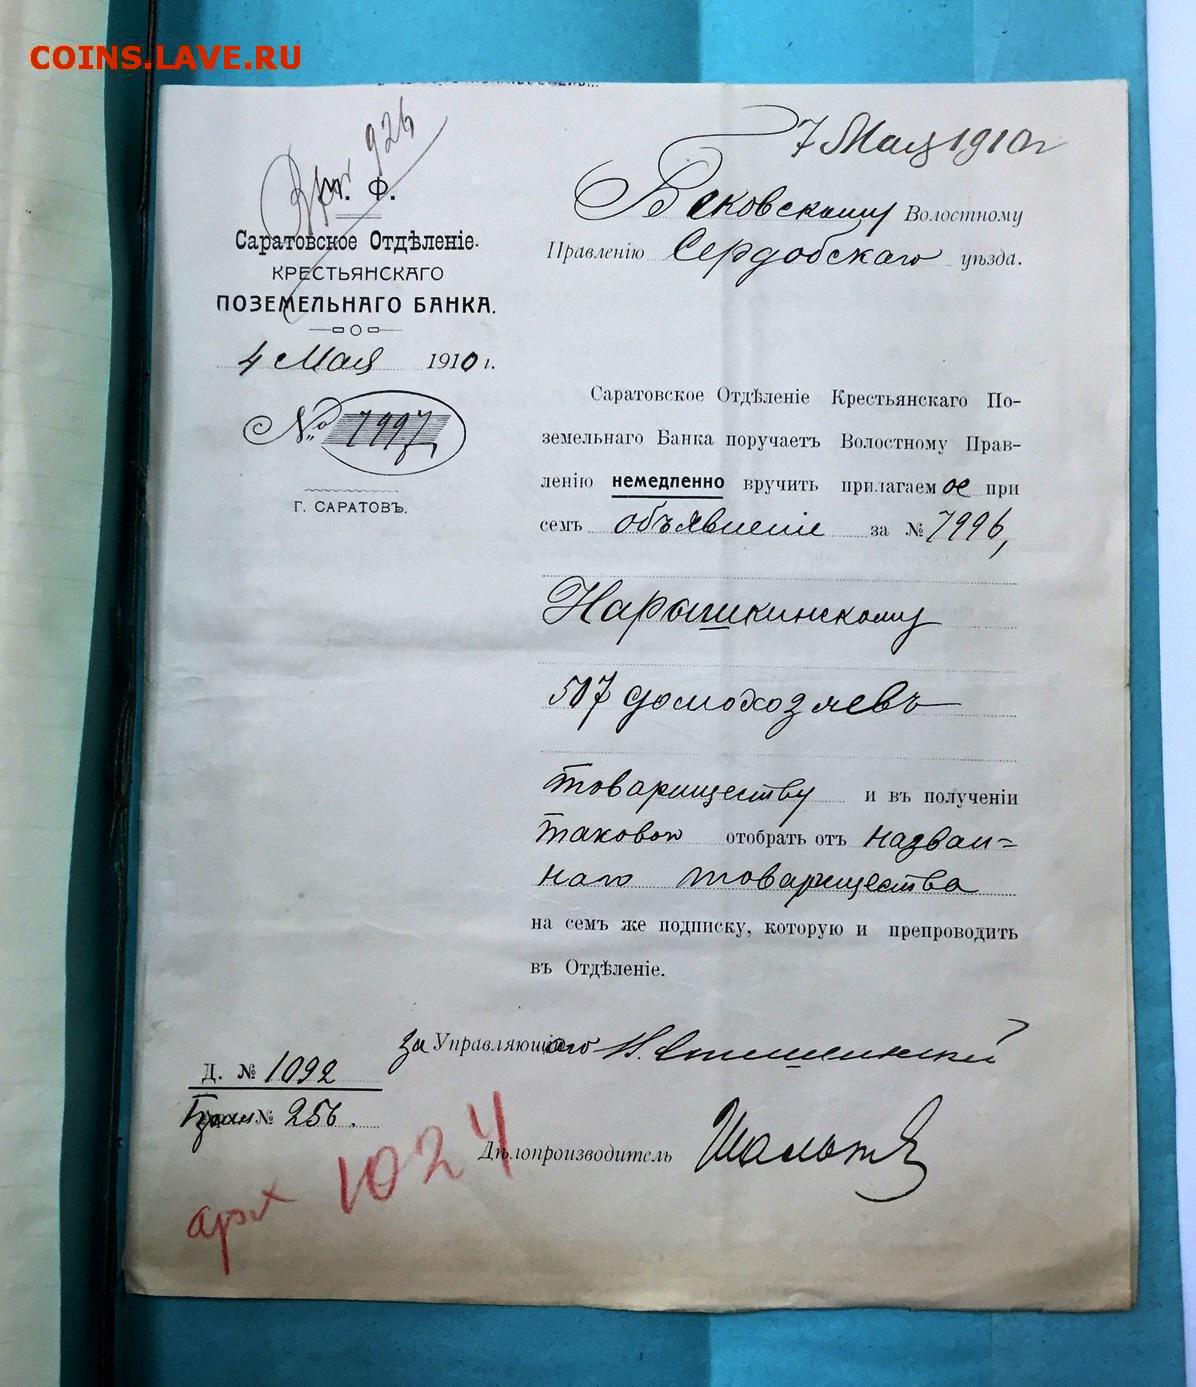 COINS.LAVE.RU
926
7 Мая 1910 г
М. Ф.
Саратовское Отдѣленіе
КРЕСТЬЯНСКАГО
ПОЗЕМЕЛЬНАГО БАНКА.
4 Мая 1910 г.
№ 7997
Г. САРАТОВЪ.
Бековскому Волостному
Правленію Сердобскаго уѣзда.
Саратовское Отдѣленіе Крестьянскаго По-
земельнаго Банка поручаетъ Волостному Прав-
ленію немедленно вручить прилагаемое при
семъ объявленіе за № 7996,
Нарышкинскому
507 домохозяевъ
товариществу и въ полученіи
такового отобрать отъ назван=
наго товарищества
на семъ же подписку, которую и препроводить
въ Отдѣленіе.
за Управляющаго Н.
Д. № 1092
№ 256.
Дѣлопроизводитель
арх 1024